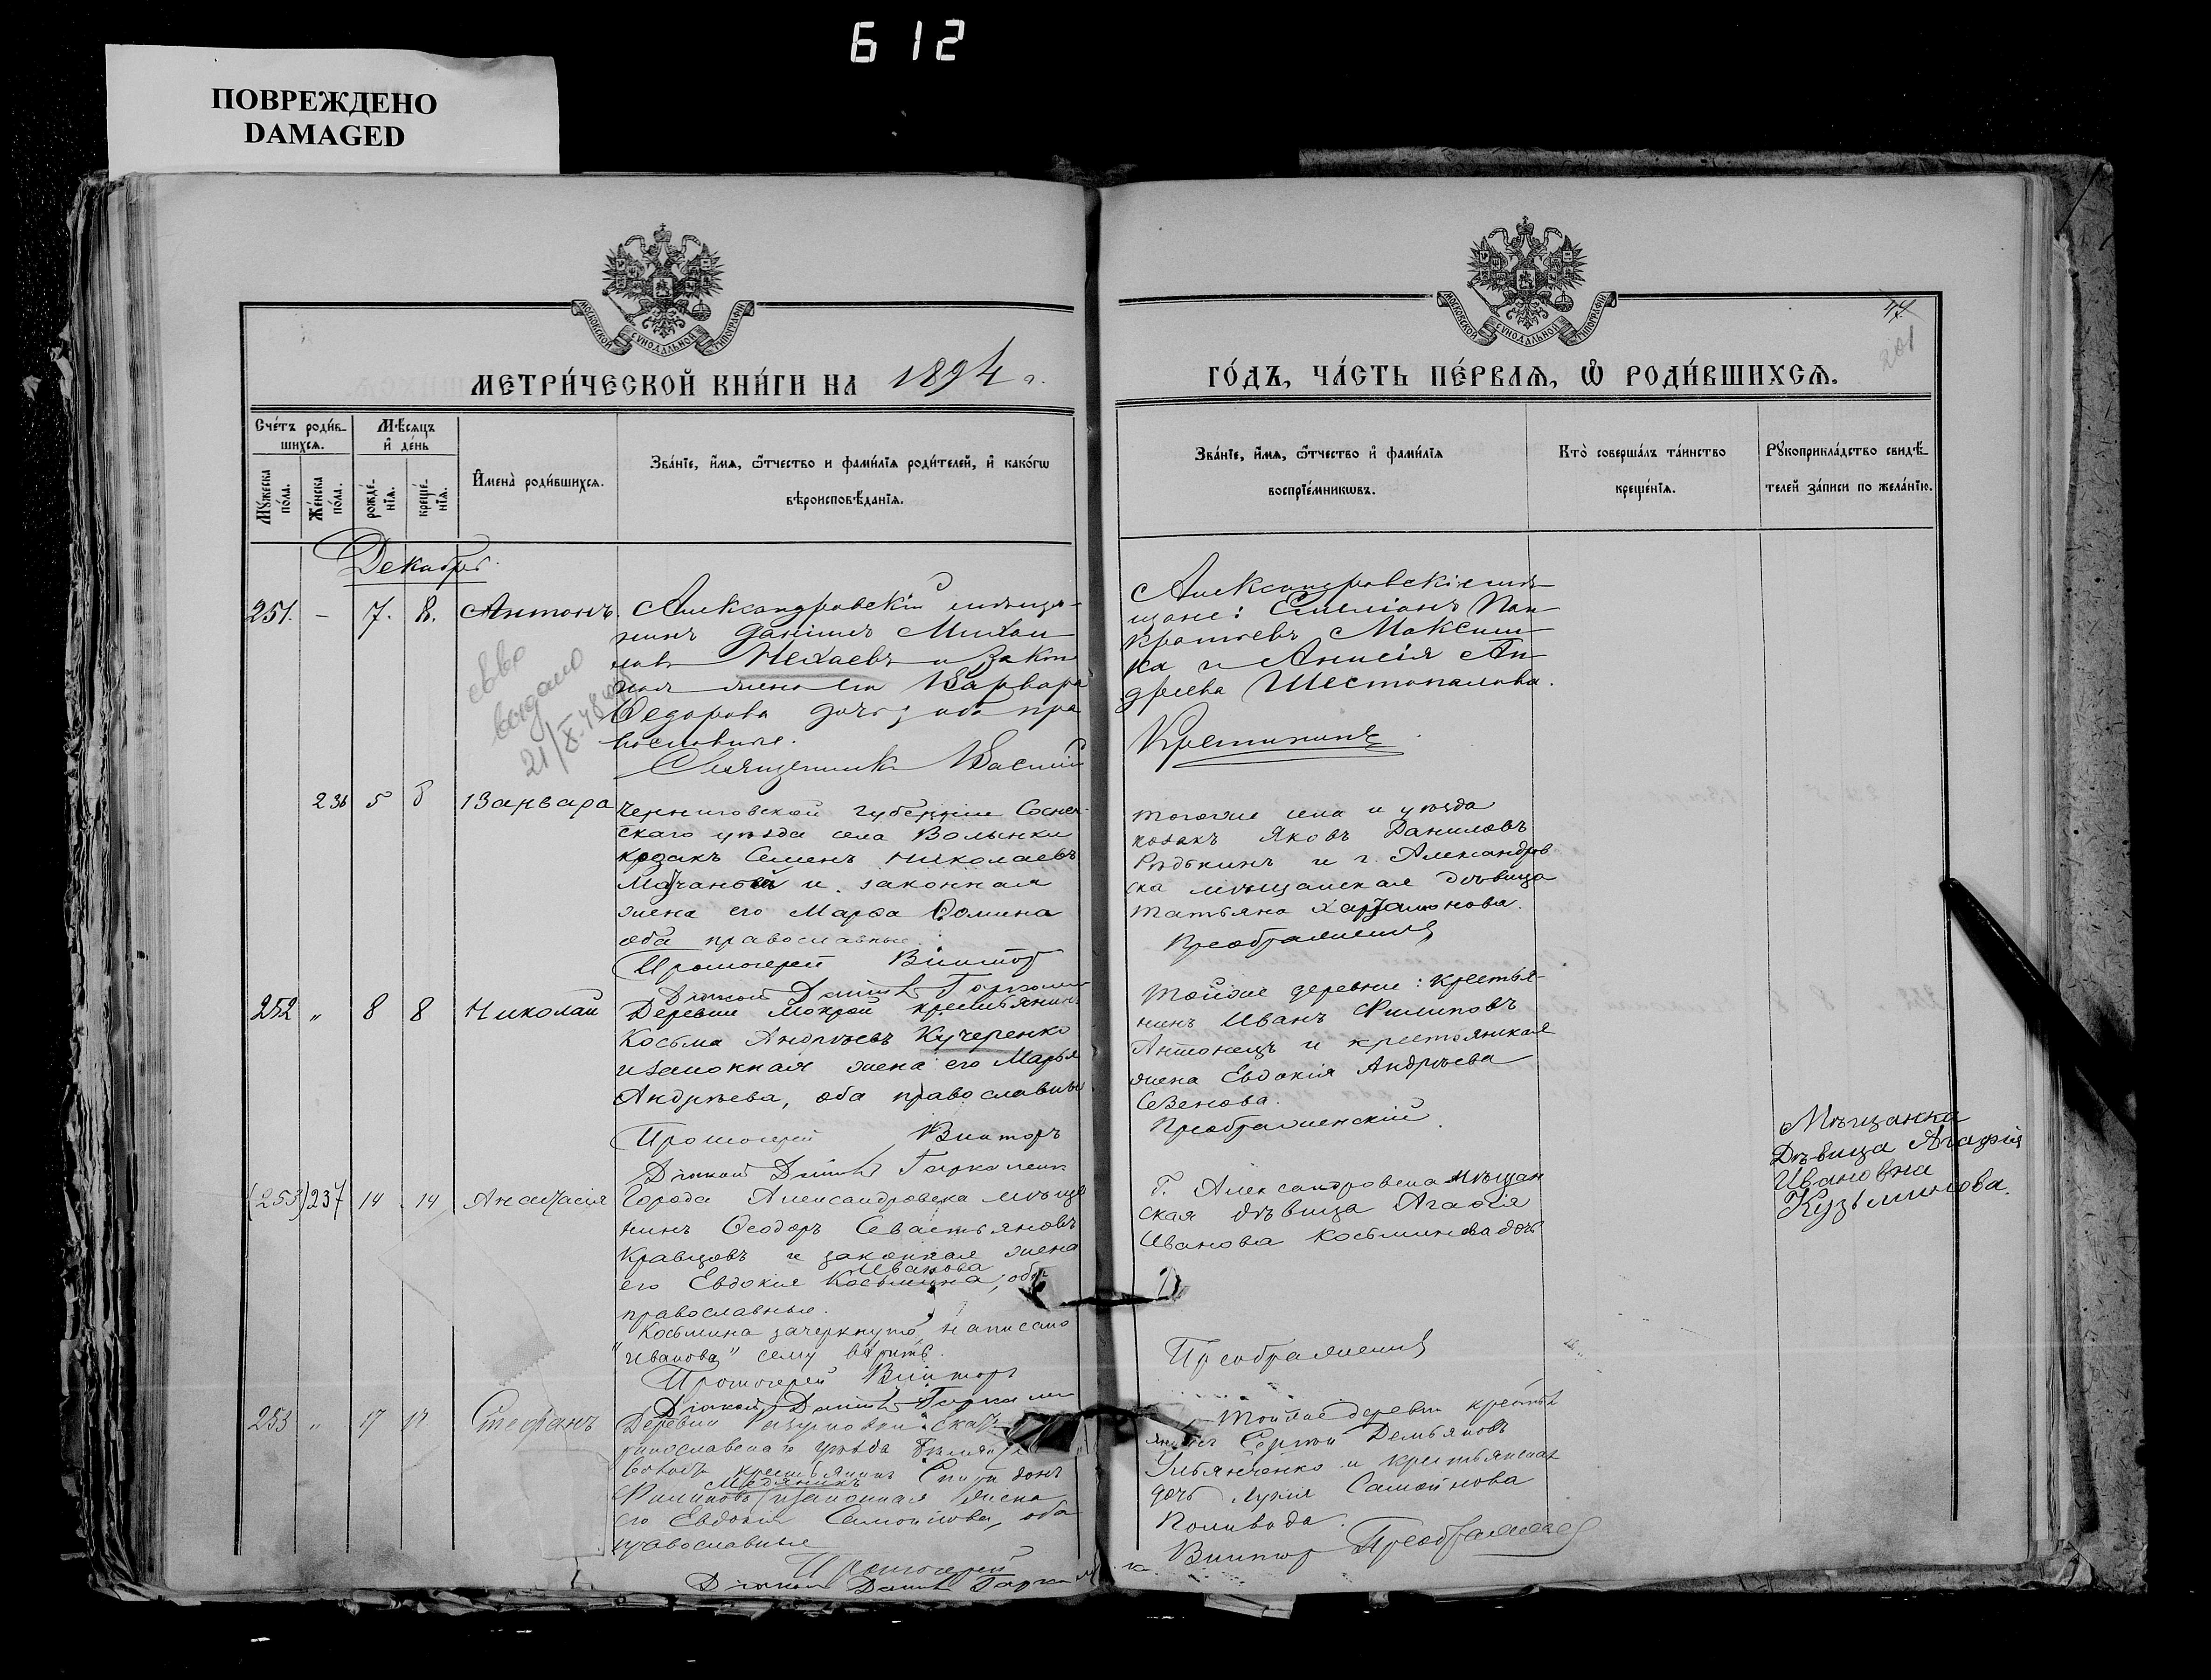 6 12
ПОВРЕЖДЕНО
DAMAGED
МОСКОВСКОЙ СѴНОДАЛЬНОЙ ТИПОГРАФІИ
МЕТРИ́ЧЕСКОЙ КНИ́ГИ НА 1894 г.
Сче́тъ роди́в-
шихсѧ.
Мѣ́сѧцъ
и҆ де́нь
Мꙋ́жеска
по́ла.
Же́нска
по́ла.
рожде́-
нїѧ.
креще́-
нїѧ.
И҆мена̀ роди́вшихсѧ.
Зва́нїе, и҆́мѧ, ѻ҆́тчество и фами́лїѧ роди́телей, и҆ како́гѡ
вѣроисповѣ́данїѧ.
Декабрь.
251. — 7. 8. Антонъ.
Александровскій мѣща-
нинъ Даніилъ Михаи
ловъ Нехаевъ и закон
ная жена его Варвара
Ѳедорова дочь; оба пра
вославные.
Священникъ Василій
выдано
21/X-48
236 5 8 Варвара
Черниговской губерніи Сосниц-
скаго уѣзда села Волынки
козакъ Семенъ Николаевъ
и законная
жена его Марѳа Ѳомина
оба православные.
Протоіерей Викторъ
252 " 8 8 Николай
Деревни Мокрой крестьянинъ
Косьма Андреевъ Кучеренко
и законная жена его Марья
Андреева, оба православные
Протоіерей Викторъ
(253) 237 14 14 Анастасія
Города Александровска мѣща
нинъ Ѳеодоръ Севастьяновъ
Кравцовъ и законная жена
Иванова
его Евдокия Косьмина, оба
православные.
Косьмина зачеркнуто, написано
"Иванова" сему вѣрить.
Протоіерей Викторъ
253 " 17 17 Стефанъ
Деревни
уѣзда
волости крестьянинъ
Филиповъ и законная жена
его Евдокия Самойлова, оба
православные
Протоіерей
МОСКОВСКОЙ СѴНОДАЛЬНОЙ ТИПОГРАФІИ
201
ГО́ДЪ, ЧА́СТЬ ПЕ́РВАѦ, Ѡ҆ РОДИ́ВШИХСѦ.
Зва́нїе, и҆́мѧ, ѻ҆́тчество и҆ фами́лїѧ
воспрїе́мникѡвъ.
Кто̀ соверша́лъ та́инство
креще́нїѧ.
Рꙋкоприкла́дство свидѣ́-
телей за́писи по жела́нїю.
Александровскіе мѣ
щане: Емеліанъ Пан
кратьевъ Максим
ка и Анисія Ан
дреева Шестопалова.
Тогоже села и уѣзда
козакъ Яковъ Даниловъ
Рѣдькинъ и г. Александров
ска мѣщанская дѣвица
Татьяна Харламонова.
Преображенскій
Тойже деревни: крестья-
нинъ Иванъ Филиповъ
Антонецъ и крестьянская
жена Евдокія Андрѣева
Преображенскій
Г. Александровска мѣщан
ская дѣвица Агаѳія
Иванова Косьминова дочь
Мѣщанка
Дѣвица Агафія
Ивановна
Кузьминова.
Преображенскій
Тойже деревни крестья
Сергѣй Демьяновъ
Ульянченко и крестьянская
дочь Лукія Самойлова
Поливода.
Викторъ Преображенскій